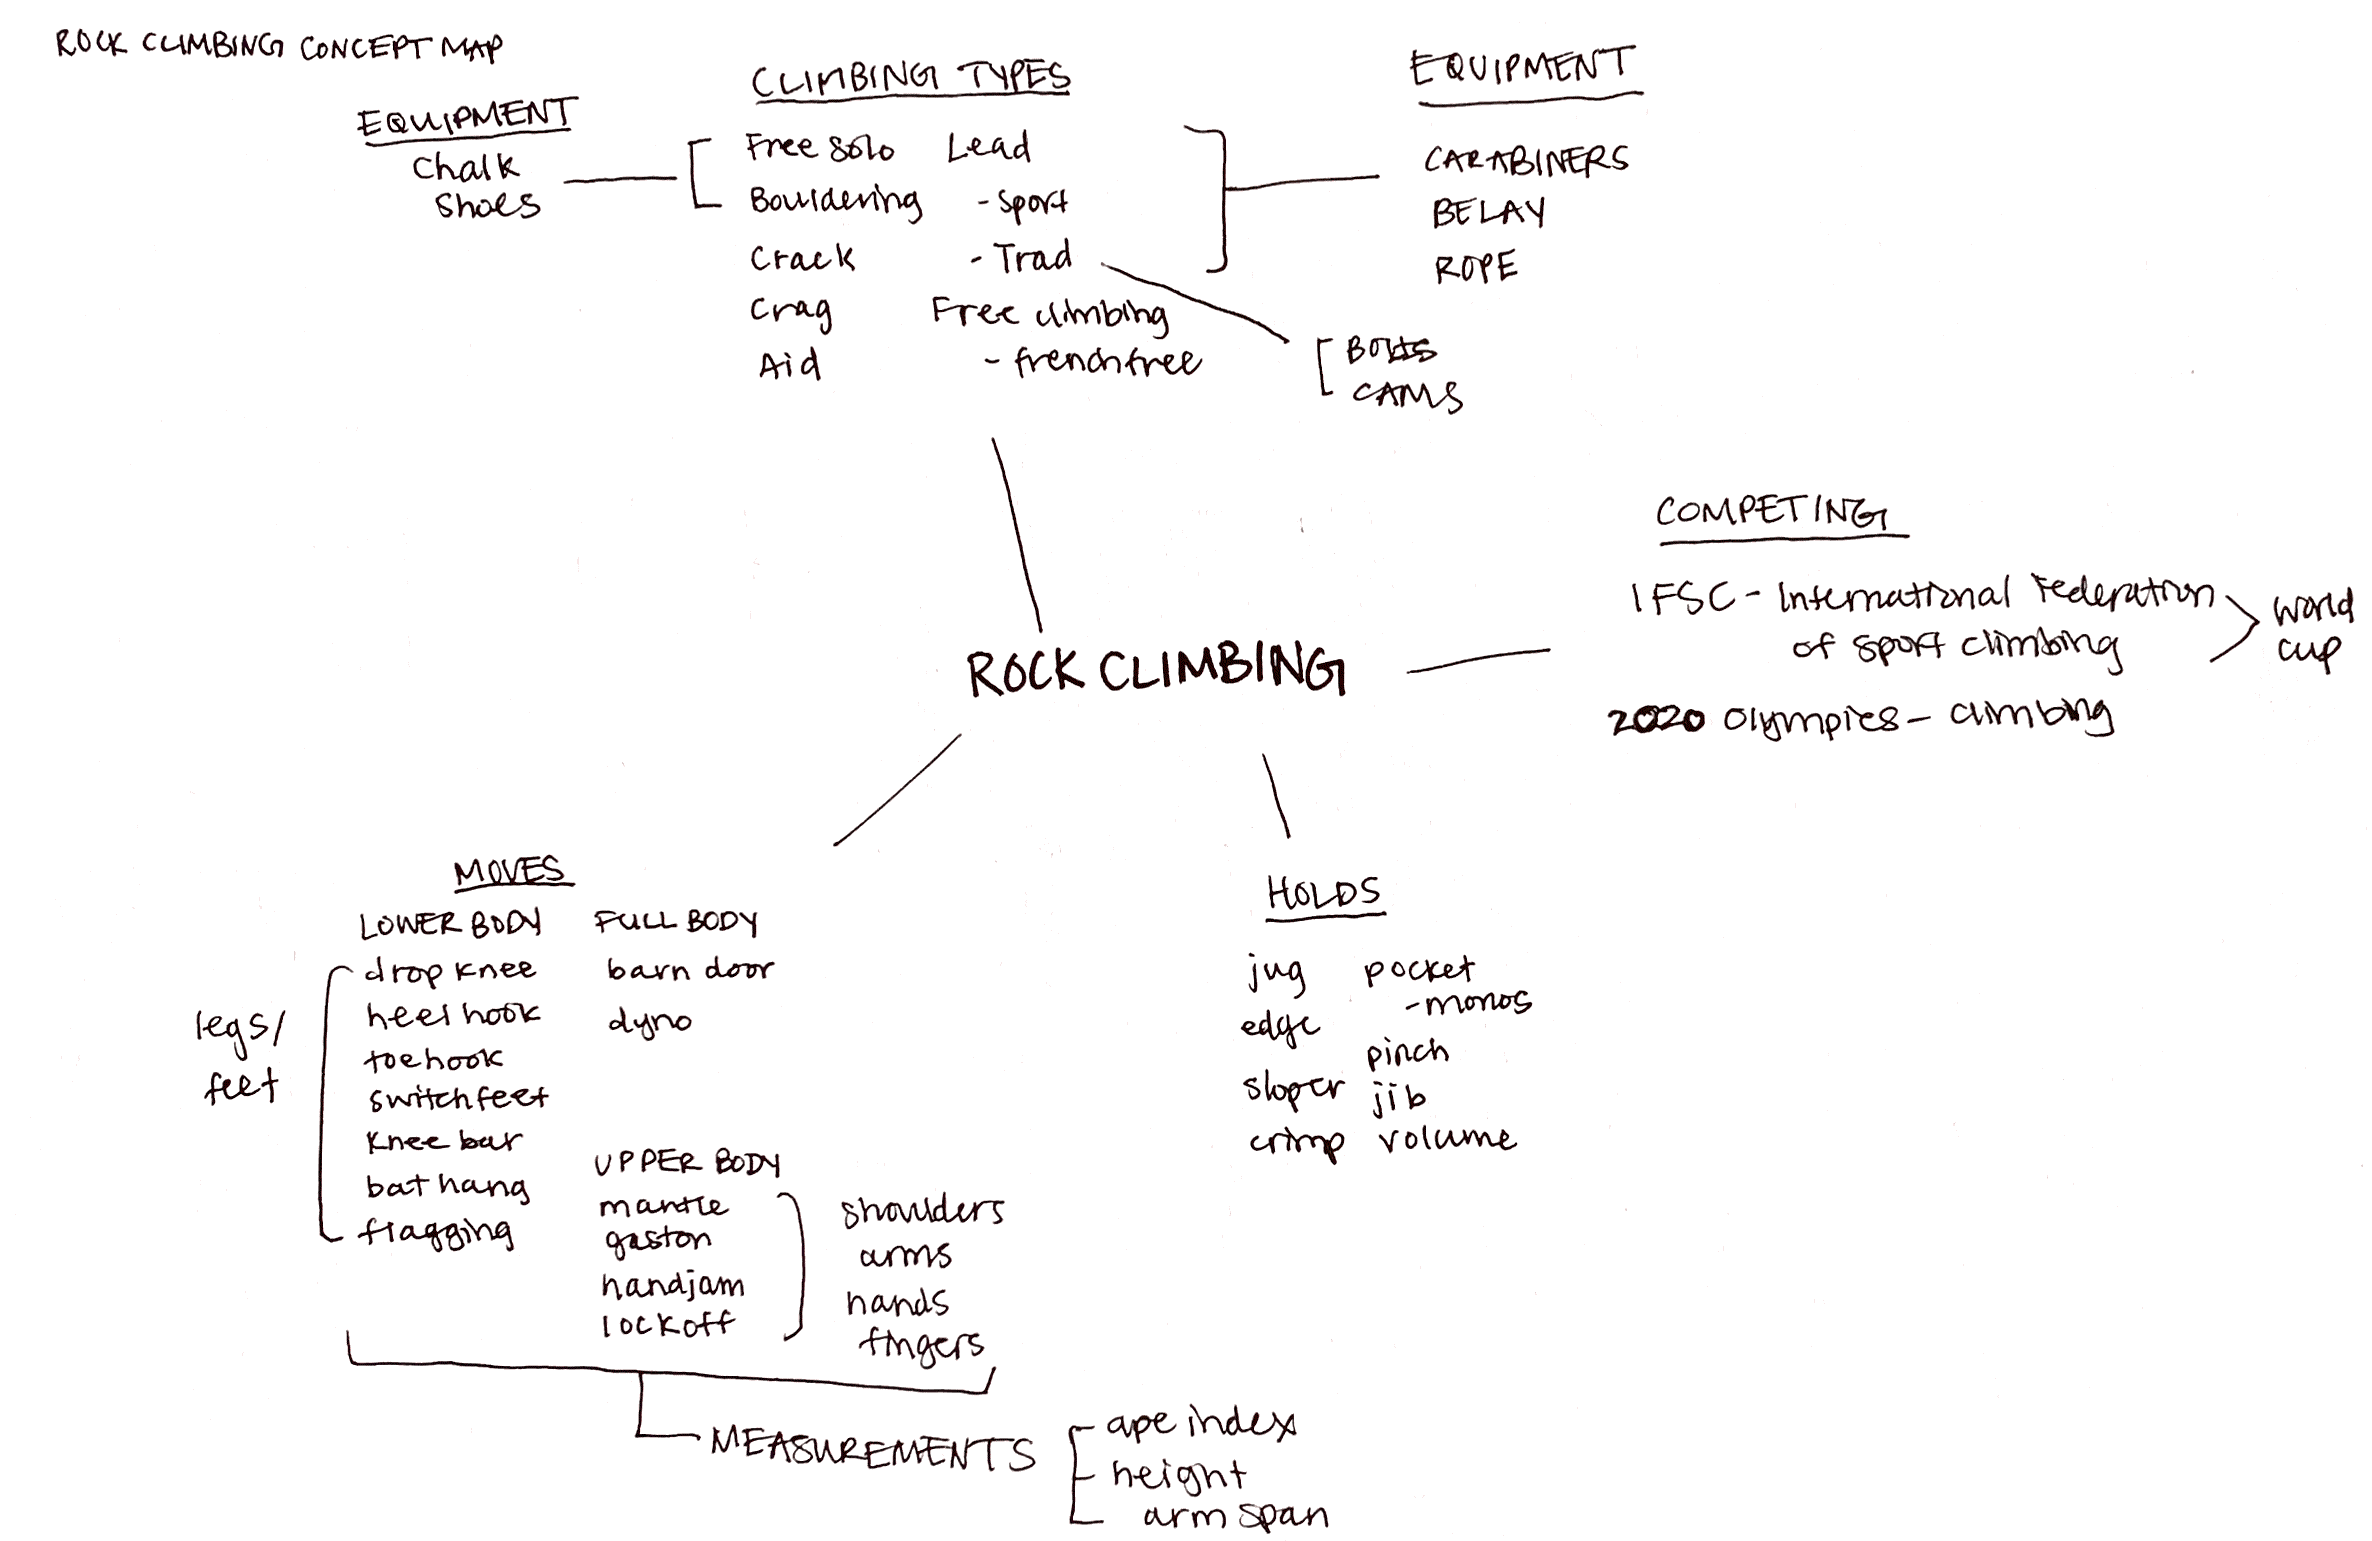 ROCK CLIMBING CONCEPT MAP
EQUIPMENT
Chalk
Shoes
CLIMBING TYPES
Free Solo
Bouldering
Crack
Crag
Aid
Lead
- Sport
- Trad
Free climbing
- french free
EQUIPMENT
CARABINERS
BELAY
ROPE
BOLTS
CAMS
ROCK CLIMBING
COMPETING
IFSC - International Federation
of sport climbing
world
cup
2020 Olympics - climbing
MOVES
LOWER BODY
drop knee
heel hook
toe hook
switch feet
knee bar
bat hang
flagging
legs/
feet
FULL BODY
barn door
dyno
UPPER BODY
mantle
gaston
handjam
lock off
shoulders
arms
hands
fingers
MEASUREMENTS
ape index
height
arm span
HOLDS
jug
edge
sloper
crimp
pocket
- monos
pinch
jib
volume